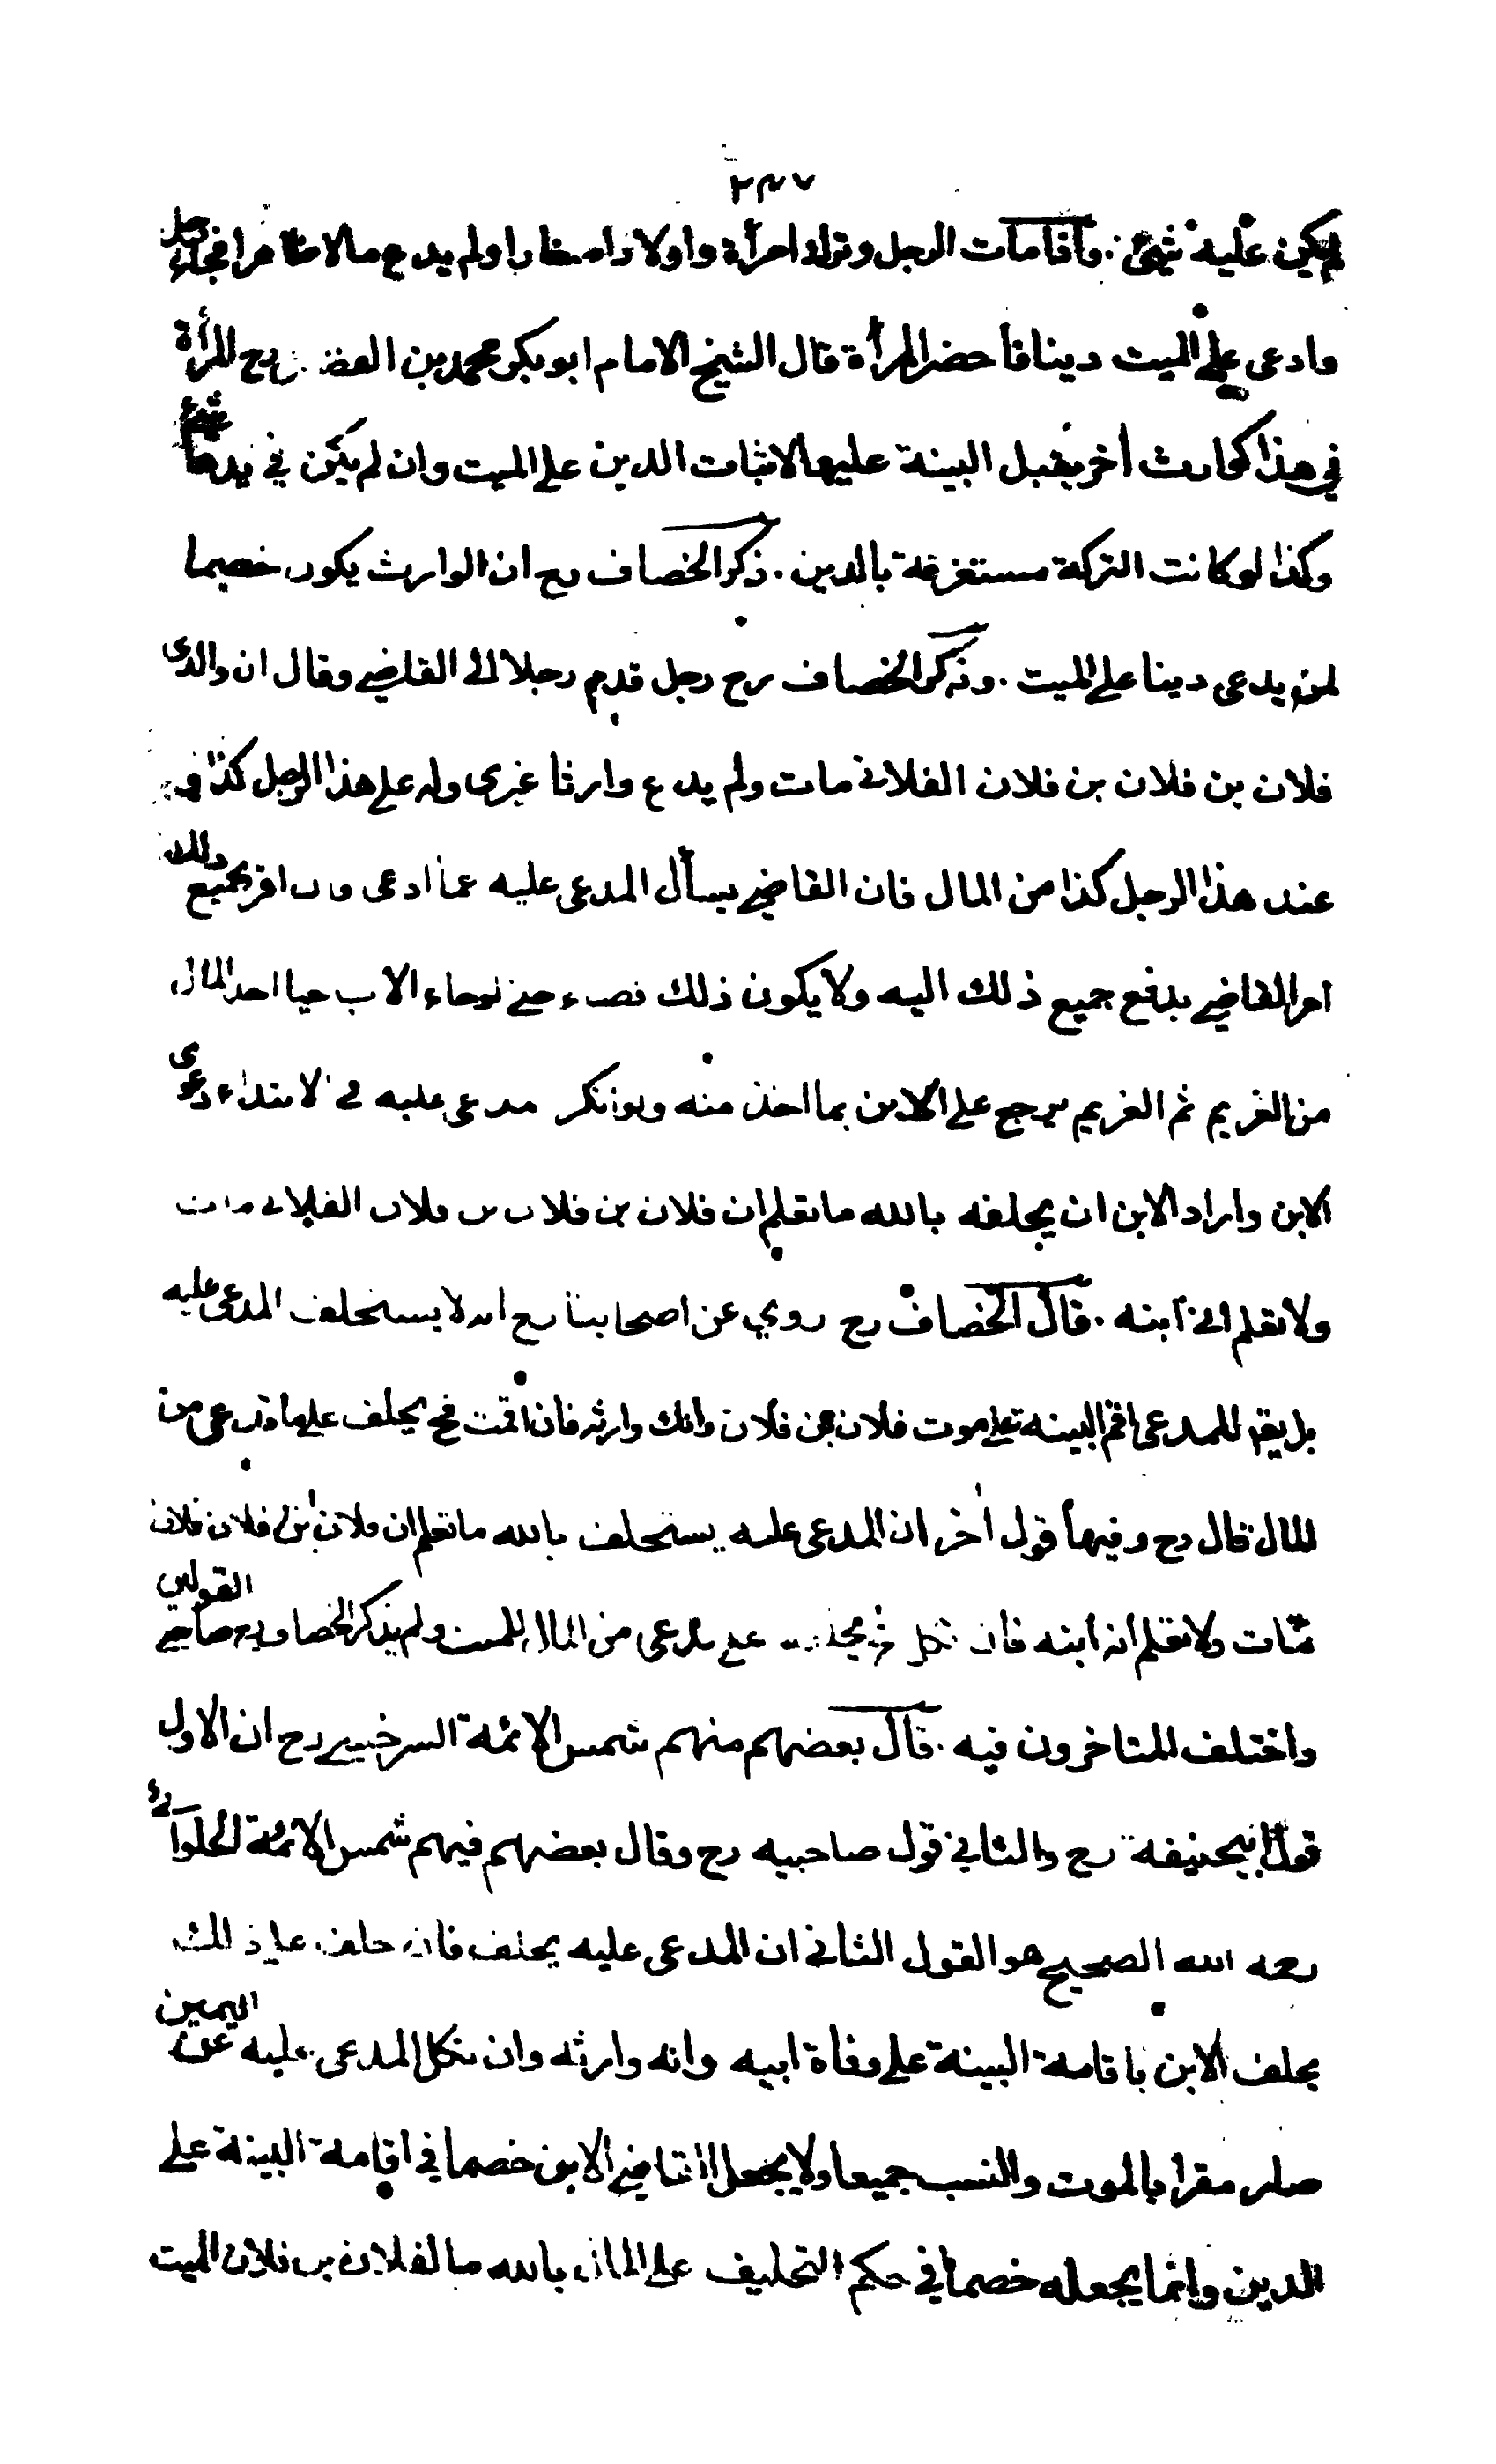 ٢٣٧
لم يكن عليه شيئ . وإذا مات الرجل وترك امرأة واولادا صغارا ولم يدع مالا ظاهرا فجاء رجل
وادعى على الميت دينا فاحضر المرأة قال الشيخ الامام ابو بكر محمد بن الفضل رح المرأة
في هذا كوارث أخر يقبل البينة عليها لاثبات الدين على الميت وان لم يكن في يدها شيئ
وكذا لو كانت التركة مستغرقة بالدين . ذكر الخصاف رح ان الوارث يكون خصما
لمن يدعى دينا على الميت . وذكر الخصاف رح رجل قدم رجلا الى القاضي وقال ان والدى
فلان بن فلان بن فلان الفلاني مات ولم يدع وارثا غيرى وله على هذا الرجل كذا و
عند هذا الرجل كذا من المال فان القاضي يسأل المدعى عليه عما ادعى فان اقر بجميع ذلك
امر القاضي بدفع جميع ذلك اليه ولا يكون ذلك قضاء حتى لو جاء الاب حيا اخذ المال
من الغريم ثم الغريم يرجع على الابن بما اخذ منه ولو انكر المدعى عليه في الابتداء دعوى
الابن واراد الابن ان يحلفه بالله ما تعلم ان فلان بن فلان بن فلان الفلاني مات
ولا تعلم اني ابنه . قال الخصاف رح روي عن اصحابنا رح انه لا يستحلف المدعى عليه
بل يقال للمدعى اقم البينة على موت فلان بن فلان وانك وارثه فان اقمت فح يحلف على ما تدعى من
المال قال رح وفيها قول أخر ان المدعى عليه يستحلف بالله ما تعلم ان فلان ابن فلان فلان
مات ولا تعلم انه ابنه فان نكل ح يحلف على ما يدعى من المال للميت ولم يذكر الخصاف رح صاحبي القولين
واختلف المتاخرون فيه . قال بعضهم منهم شمس الائمة السرخسي رح ان الاول
قول ابيحنيفة رح والثاني قول صاحبيه رح وقال بعضهم فيهم شمس الائمة الحلواني
رحمه الله الصحيح هو القول الثاني ان المدعى عليه يحلف فان حلف على ذلك
يحلف الابن باقامة البينة على وفاة ابيه وانه وارثه وان نكل المدعى عليه عن اليمين
صار مقرا بالموت والنسب جميعا ولا يجعل القاضي الابن خصما في اقامة البينة على
الدين وانما يجعله خصما في حكم التحليف على المال بالله ما لفلان بن فلان الميت